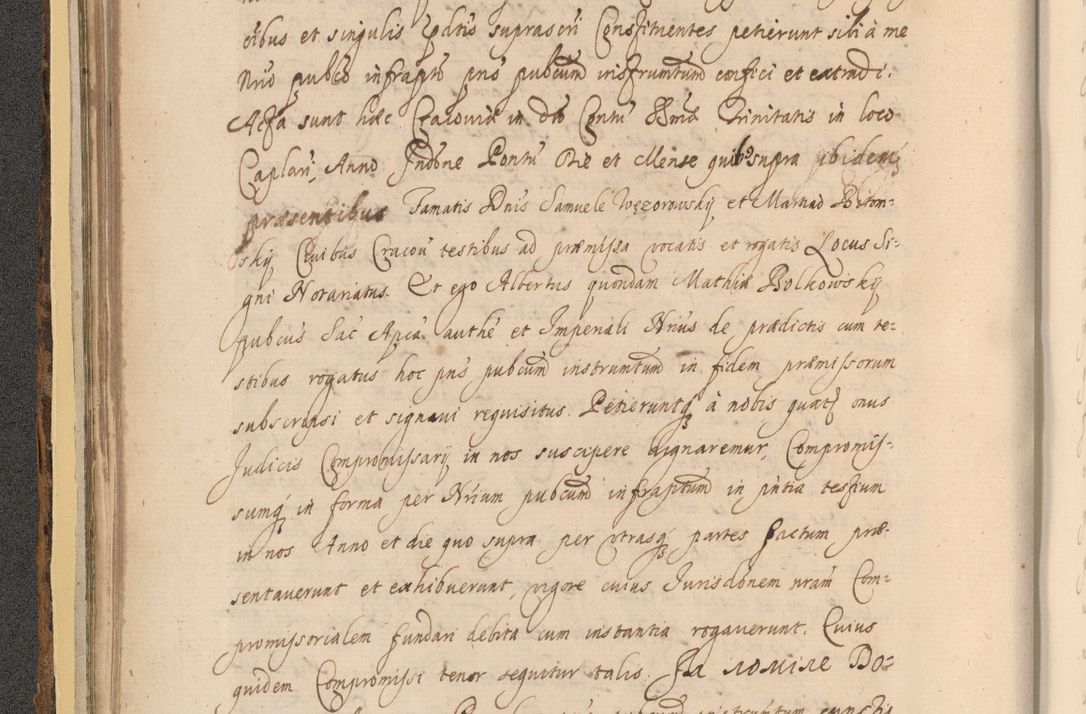 eibus et singulis Cpdtis suprascri Constituentes petierunt sibi à me
Nrio pubco infrapto pns pubcum instrumentum confici et extradi.
Acta sunt hæc Cracoviæ in dto Contu SSmæ Trinitatis in loco
Caplari, Anno Indone Pontu Die et Mense quibs supra ibidem
præsentibus Famatis Dnis Samuele Węzorowsky et Mathia Biton=
sky Civibus Cracov testibus ad præmissa vocatis et rogatis Locus Si=
gni Notariatus. Et ego Albertus quondam Mathiæ Bolkowsky
pubcus Sac Apca authe et Imperiali Nrius de prædictis cum te=
stibus rogatus hoc pns pubcum instrumtum in fidem præmissorum
subscripsi et signavi requisitus. Petieruntq à nobis quats onus
Judicis Compromissarij in nos suscipere dignaremur, Compromis=
sumq in forma per Nrium pubcum infraptum in pntia testium
in nos Anno et die quo supra per utrasq partes factum præ=
sentaverunt et exhibuerunt, vigore cuius Jurisdonem nram Com=
promissorialem fundari debita cum instantia rogaverunt. Cuius
quidem Compromissi tenor sequitur talis. In nomine Do=